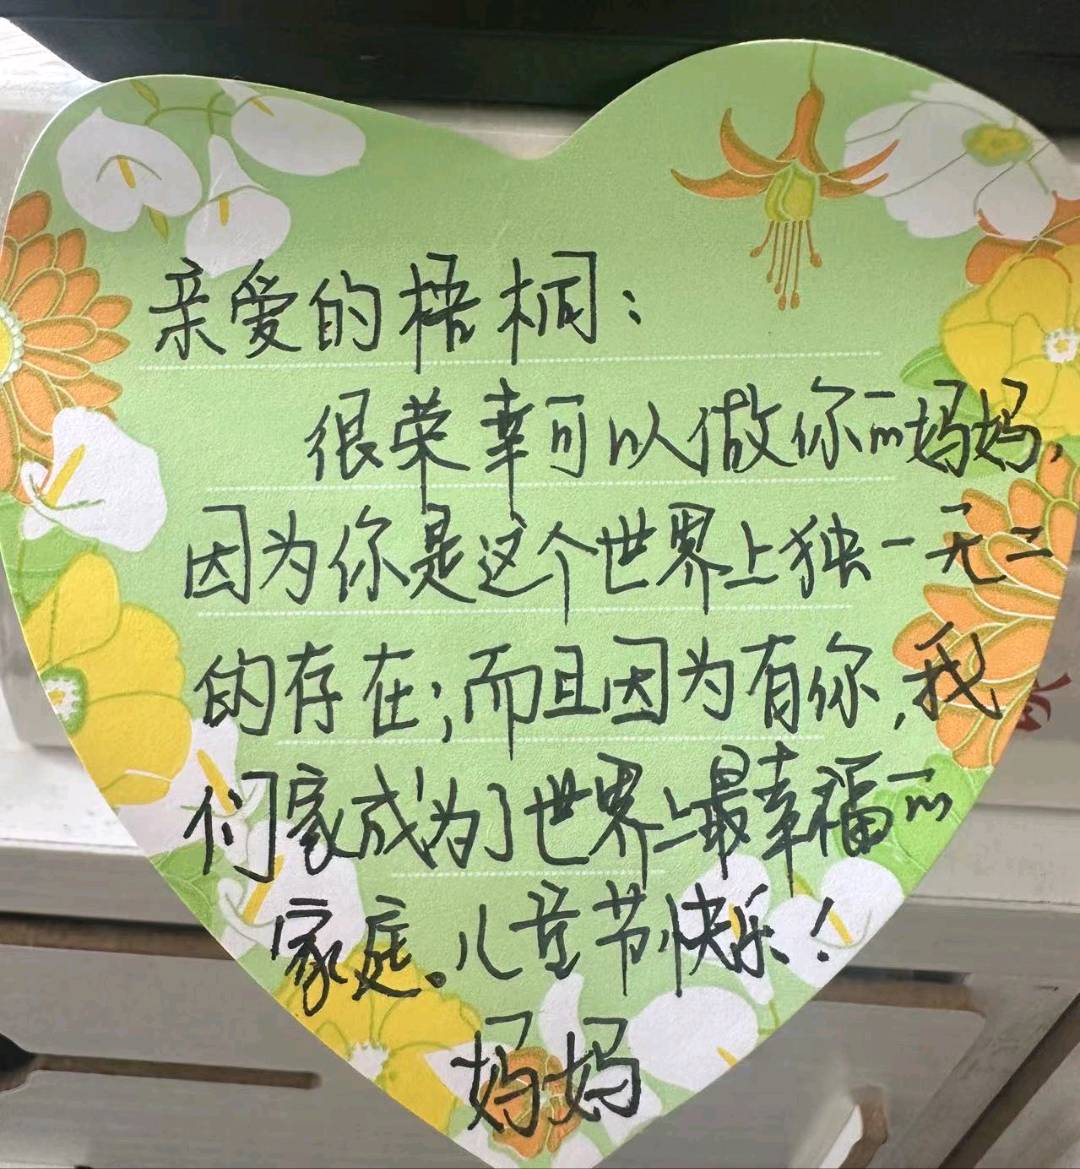 亲爱的梧桐：
很荣幸可以做你的妈妈，
因为你是这个世界上独一无二
的存在；而且因为有你，我
们家成为了世界上最幸福的
家庭。儿童节快乐！
妈妈